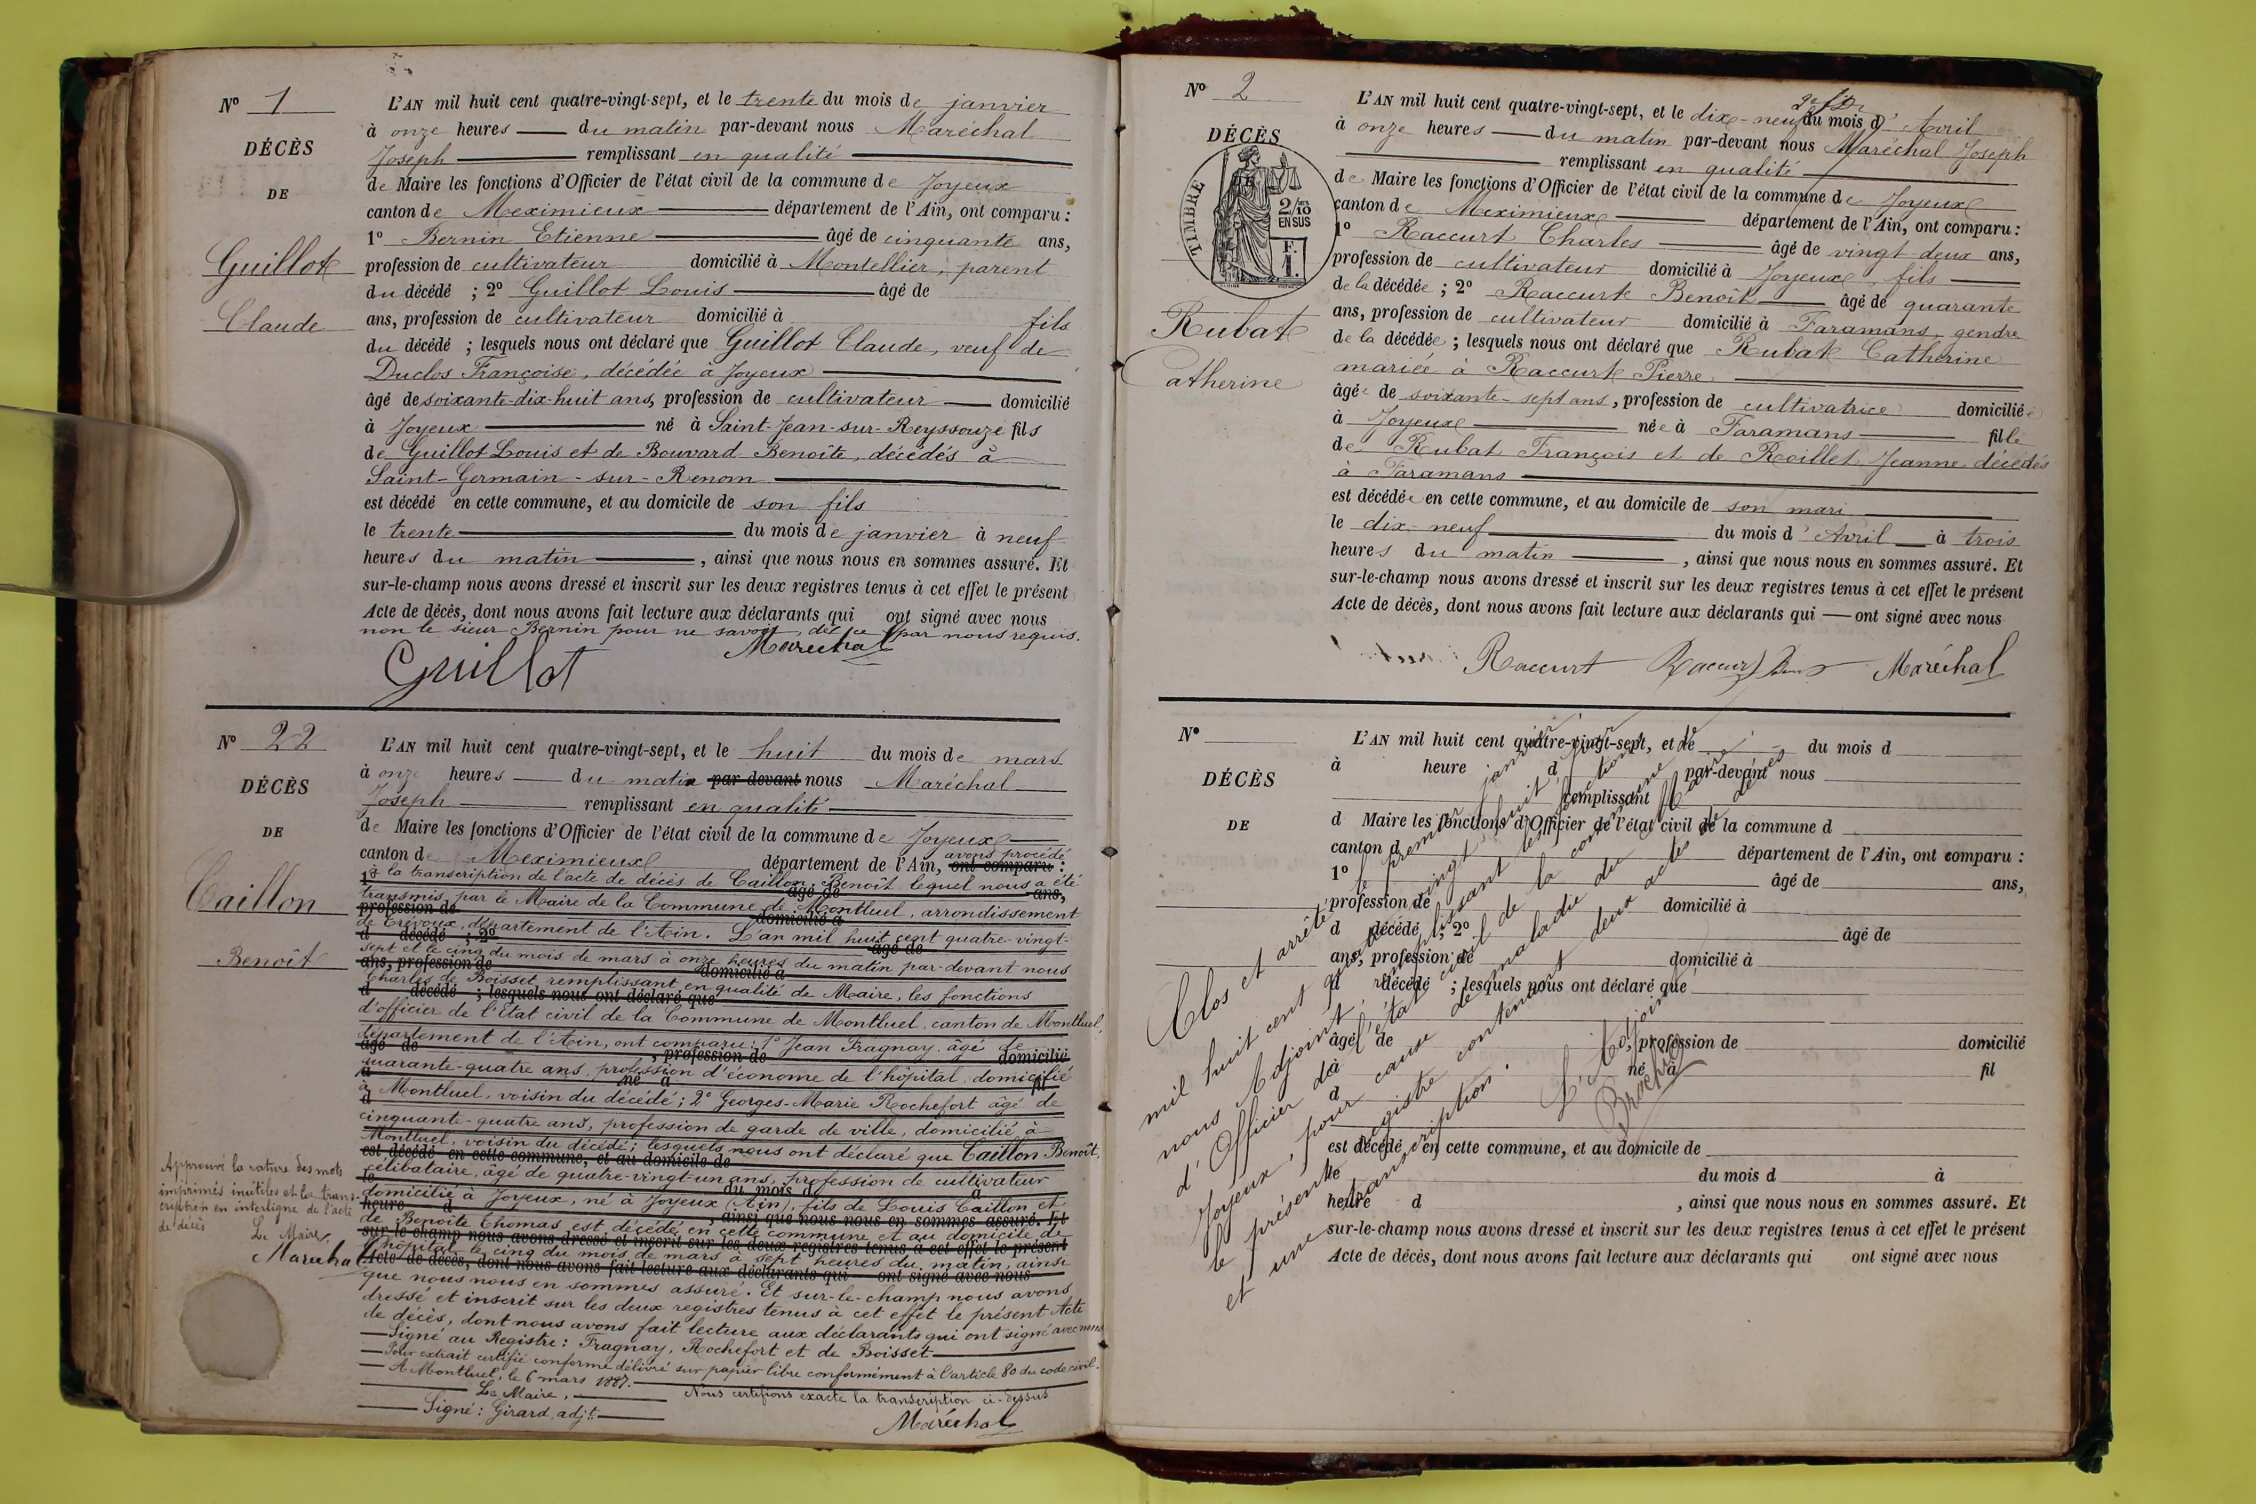 N° 1
DÉCÈS
DE
Guillot
Claude
L'AN mil huit cent quatre-vingt-sept, et le trente du mois de janvier
à onze heures du matin par-devant nous Maréchal
Joseph remplissant en qualité
de Maire les fonctions d'Officier de l'état civil de la commune de Joyeux
canton de Meximieux département de l'Ain, ont comparu :
1° Bernin Etienne âgé de cinquante ans,
profession de cultivateur domicilié à Montellier, parent
du décédé ; 2° Guillot Louis âgé de
ans, profession de cultivateur domicilié à fils
du décédé ; lesquels nous ont déclaré que Guillot Claude, veuf de
Duclos Françoise, décédée à Joyeux
âgé de soixante-dix-huit ans, profession de cultivateur domicilié
à Joyeux né à Saint-Jean-sur-Reyssouze fils
de Guillot Louis et de Bouvard Benoîte, décédés à
Saint-Germain-sur-Renom
est décédé en cette commune, et au domicile de son fils
le trente du mois de janvier à neuf
heures du matin, ainsi que nous nous en sommes assuré. Et
sur-le-champ nous avons dressé et inscrit sur les deux registres tenus à cet effet le présent
Acte de décès, dont nous avons fait lecture aux déclarants qui ont signé avec nous
non le sieur Bernin pour ne savoir, de ce par nous requis.
Maréchal
Guillot
N° 22
DÉCÈS
DE
Caillon
Benoît
L'AN mil huit cent quatre-vingt-sept, et le huit du mois de mars
à onze heures du matin par devant nous Maréchal
Joseph remplissant en qualité
de Maire les fonctions d'Officier de l'état civil de la commune de Joyeux
avons procédé
canton de Meximieux département de l'Ain, ont comparu :
à la transcription de l'acte de décès de Caillon Benoît lequel nous a été
1° âgé de ans,
transmis par le Maire de la Commune de Montluel, arrondissement
profession de domicilié à
de Trévoux, département de l'Ain. L'an mil huit cent quatre-vingt-
d décédé ; 2° âgé de
sept et le cinq du mois de mars à onze heures du matin par-devant nous
ans, profession de domicilié à
Charles de Boisset remplissant en qualité de Maire, les fonctions
d décédé ; lesquels nous ont déclaré que
d'officier de l'Etat civil de la Commune de Montluel, canton de Montluel,
département de l'Ain, ont comparu : 1° Jean Fragnay âgé de
âgé de , profession de domicilié
quarante-quatre ans, profession d'économe de l'hôpital, domicilié
à né à fil
à Montluel, voisin du décédé ; 2° Georges-Marie Rochefort âgé de
d
cinquante-quatre ans, profession de garde de ville, domicilié à
Montluel, voisin du décédé ; lesquels nous ont déclaré que Caillon Benoît,
est décédé en cette commune, et au domicile de
célibataire, âgé de quatre-vingt-un ans, profession de cultivateur
le du mois d à
domicilié à Joyeux, né à Joyeux (Ain), fils de Louis Caillon et
heure d , ainsi que nous nous en sommes assuré. Et
de Benoîte Thomas est décédé en cette commune et au domicile de
sur-le-champ nous avons dressé et inscrit sur les deux registres tenus à cet effet le présent
l'hôpital le cinq du mois de mars à sept heures du matin, ainsi
Acte de décès, dont nous avons fait lecture aux déclarants qui ont signé avec nous
que nous nous en sommes assuré. Et sur-le-champ nous avons
dressé et inscrit sur les deux registres tenus à cet effet le présent Acte
de décès, dont nous avons fait lecture aux déclarants qui ont signé avec nous
Signé au Registre : Fragnay, Rochefort et de Boisset
Pour extrait certifié conforme délivré sur papier libre conformément à l'article 80 du code civil.
A Montluel, le 6 mars 1887.
Le Maire, Nous certifions exacte la transcription ci-dessus
Signé : Girard adjt. Maréchal
Approuvé la rature des mots
imprimés inutiles et la trans-
cription en interligne de l'acte
de décès
Le Maire,
Maréchal
N° 2
DÉCÈS
DE
TIMBRE
2/10
EN SUS
F.
1.
Rubat
Catherine
L'AN mil huit cent quatre-vingt-sept, et le dix-neuf du mois d'Avril
à onze heures du matin par-devant nous Maréchal Joseph
remplissant en qualité
de Maire les fonctions d'Officier de l'état civil de la commune de Joyeux
canton de Meximieux département de l'Ain, ont comparu :
1° Raccurt Charles âgé de vingt-deux ans,
profession de cultivateur domicilié à Joyeux, fils
de la décédée ; 2° Raccurt Benoît âgé de quarante
ans, profession de cultivateur domicilié à Faramans, gendre
de la décédée ; lesquels nous ont déclaré que Rubat Catherine
mariée à Raccurt Pierre
âgée de soixante-sept ans, profession de cultivatrice domiciliée
à Joyeux née à Faramans fille
de Rubat François et de Roillet Jeanne décédés
à Faramans
est décédée en cette commune, et au domicile de son mari
le dix-neuf du mois d'Avril à trois
heures du matin, ainsi que nous nous en sommes assuré. Et
sur-le-champ nous avons dressé et inscrit sur les deux registres tenus à cet effet le présent
Acte de décès, dont nous avons fait lecture aux déclarants qui ont signé avec nous
Raccurt Raccurt Maréchal
N°
DÉCÈS
DE
L'AN mil huit cent quatre-vingt-sept, et le du mois d
à heure d par-devant nous
remplissant
d Maire les fonctions d'Officier de l'état civil de la commune d
canton d département de l'Ain, ont comparu :
1° âgé de ans,
profession de domicilié à
d décédé ; 2° âgé de
ans, profession de domicilié à
d décédé ; lesquels nous ont déclaré que
âgé de , profession de domicilié
à né à fil
d
est décédé en cette commune, et au domicile de
le du mois d à
heure d , ainsi que nous nous en sommes assuré. Et
sur-le-champ nous avons dressé et inscrit sur les deux registres tenus à cet effet le présent
Acte de décès, dont nous avons fait lecture aux déclarants qui ont signé avec nous
Clos et arrêté le premier janvier
mil huit cent quatre vingt huit, par
nous Adjoint remplissant les fonctions
d'Officier de l'état civil de la commune de
Joyeux, pour cause de maladie du Maire
le présent registre contenant deux actes de décès
et une transcription.
L'Adjoint